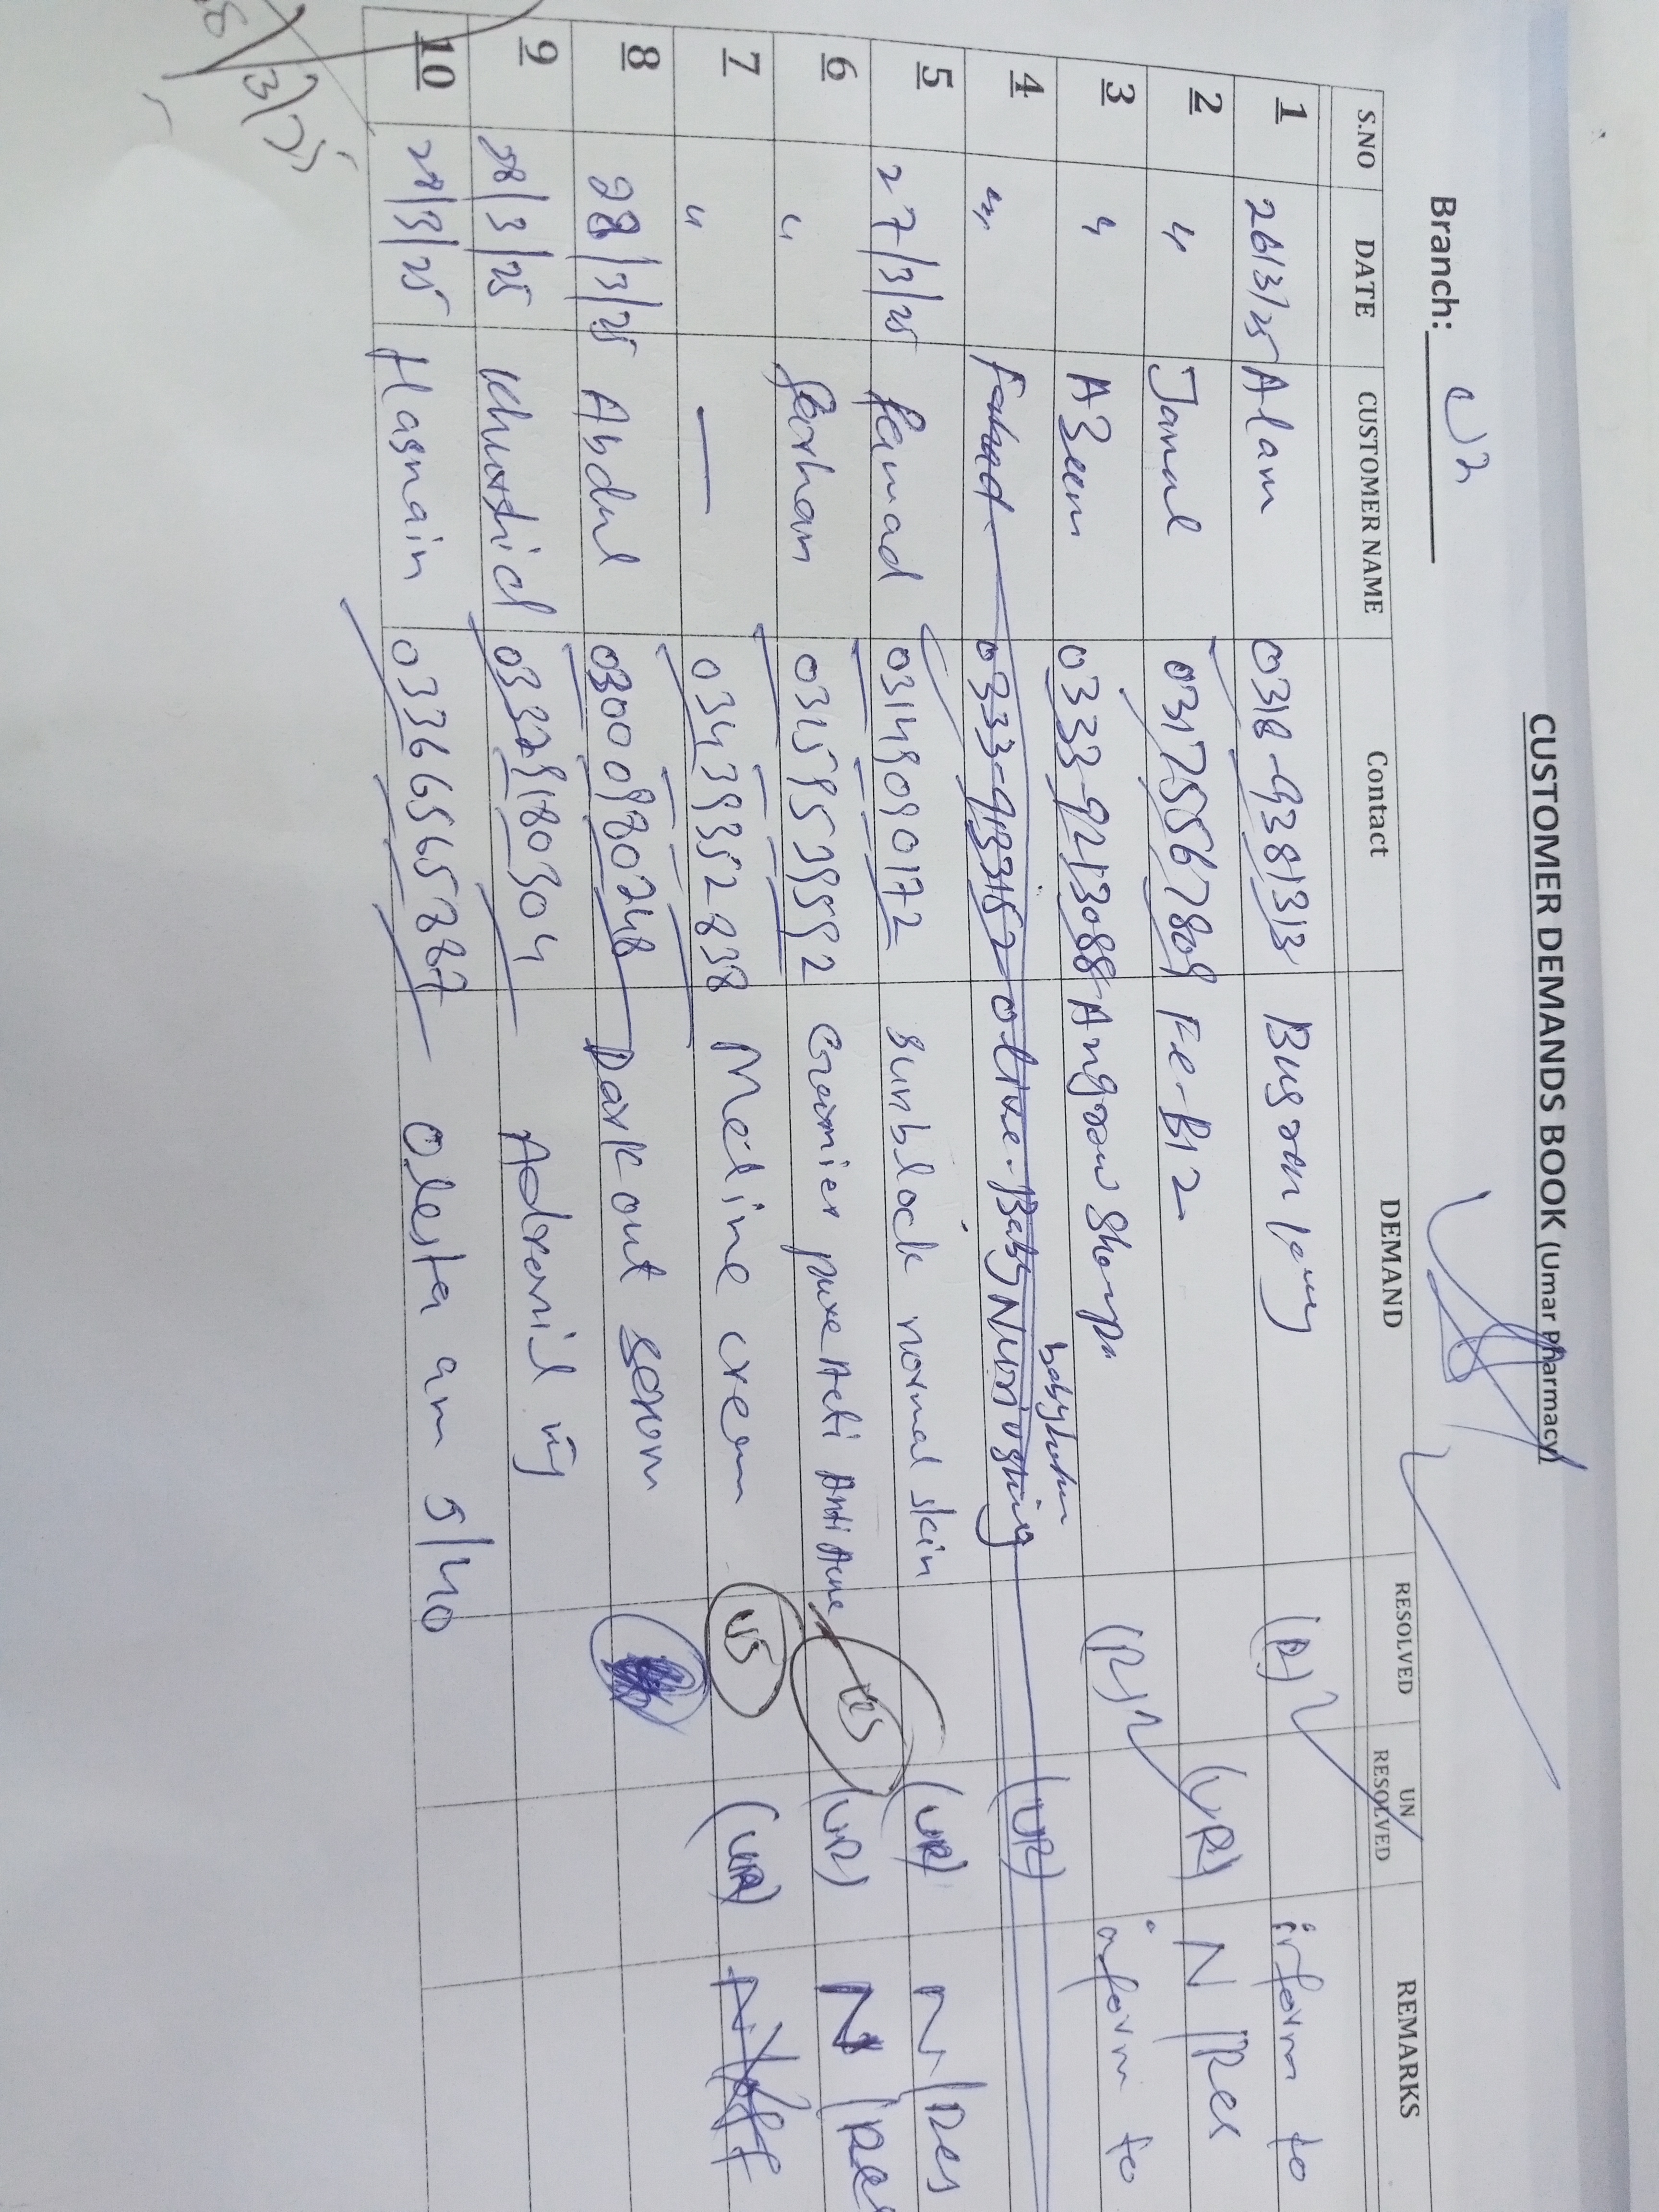 CUSTOMER DEMANDS BOOK (Umar Pharmacy)
Branch:
S.NO DATE CUSTOMER NAME Contact DEMAND RESOLVED UN RESOLVED REMARKS
1 26/3/25 Alam 0318-9381313 (R) inform to
2 " Jamal 03175567809 Fe-B12 (UR) N/Res
3 " Azeem 0333-9213088 (R) inform to
baby lotion
4 " Fahad 0333-9133157 olive Baby Nurioshing (UR)
5 27/3/25 03149090172 sunblock normal skin (UR) N/Res
6 " Farham 03459539592 Garnier pure Acti Anti Acne (UR) N/Re
7 " — 03439352838 Meline cream (UR)
8 28/3/25 Abdul 03000980248 Dark out serom
9 28/3/25 Khurshid Adronil inj
10 28/3/25 Hasnain 03366565787 Olesta am 5/40